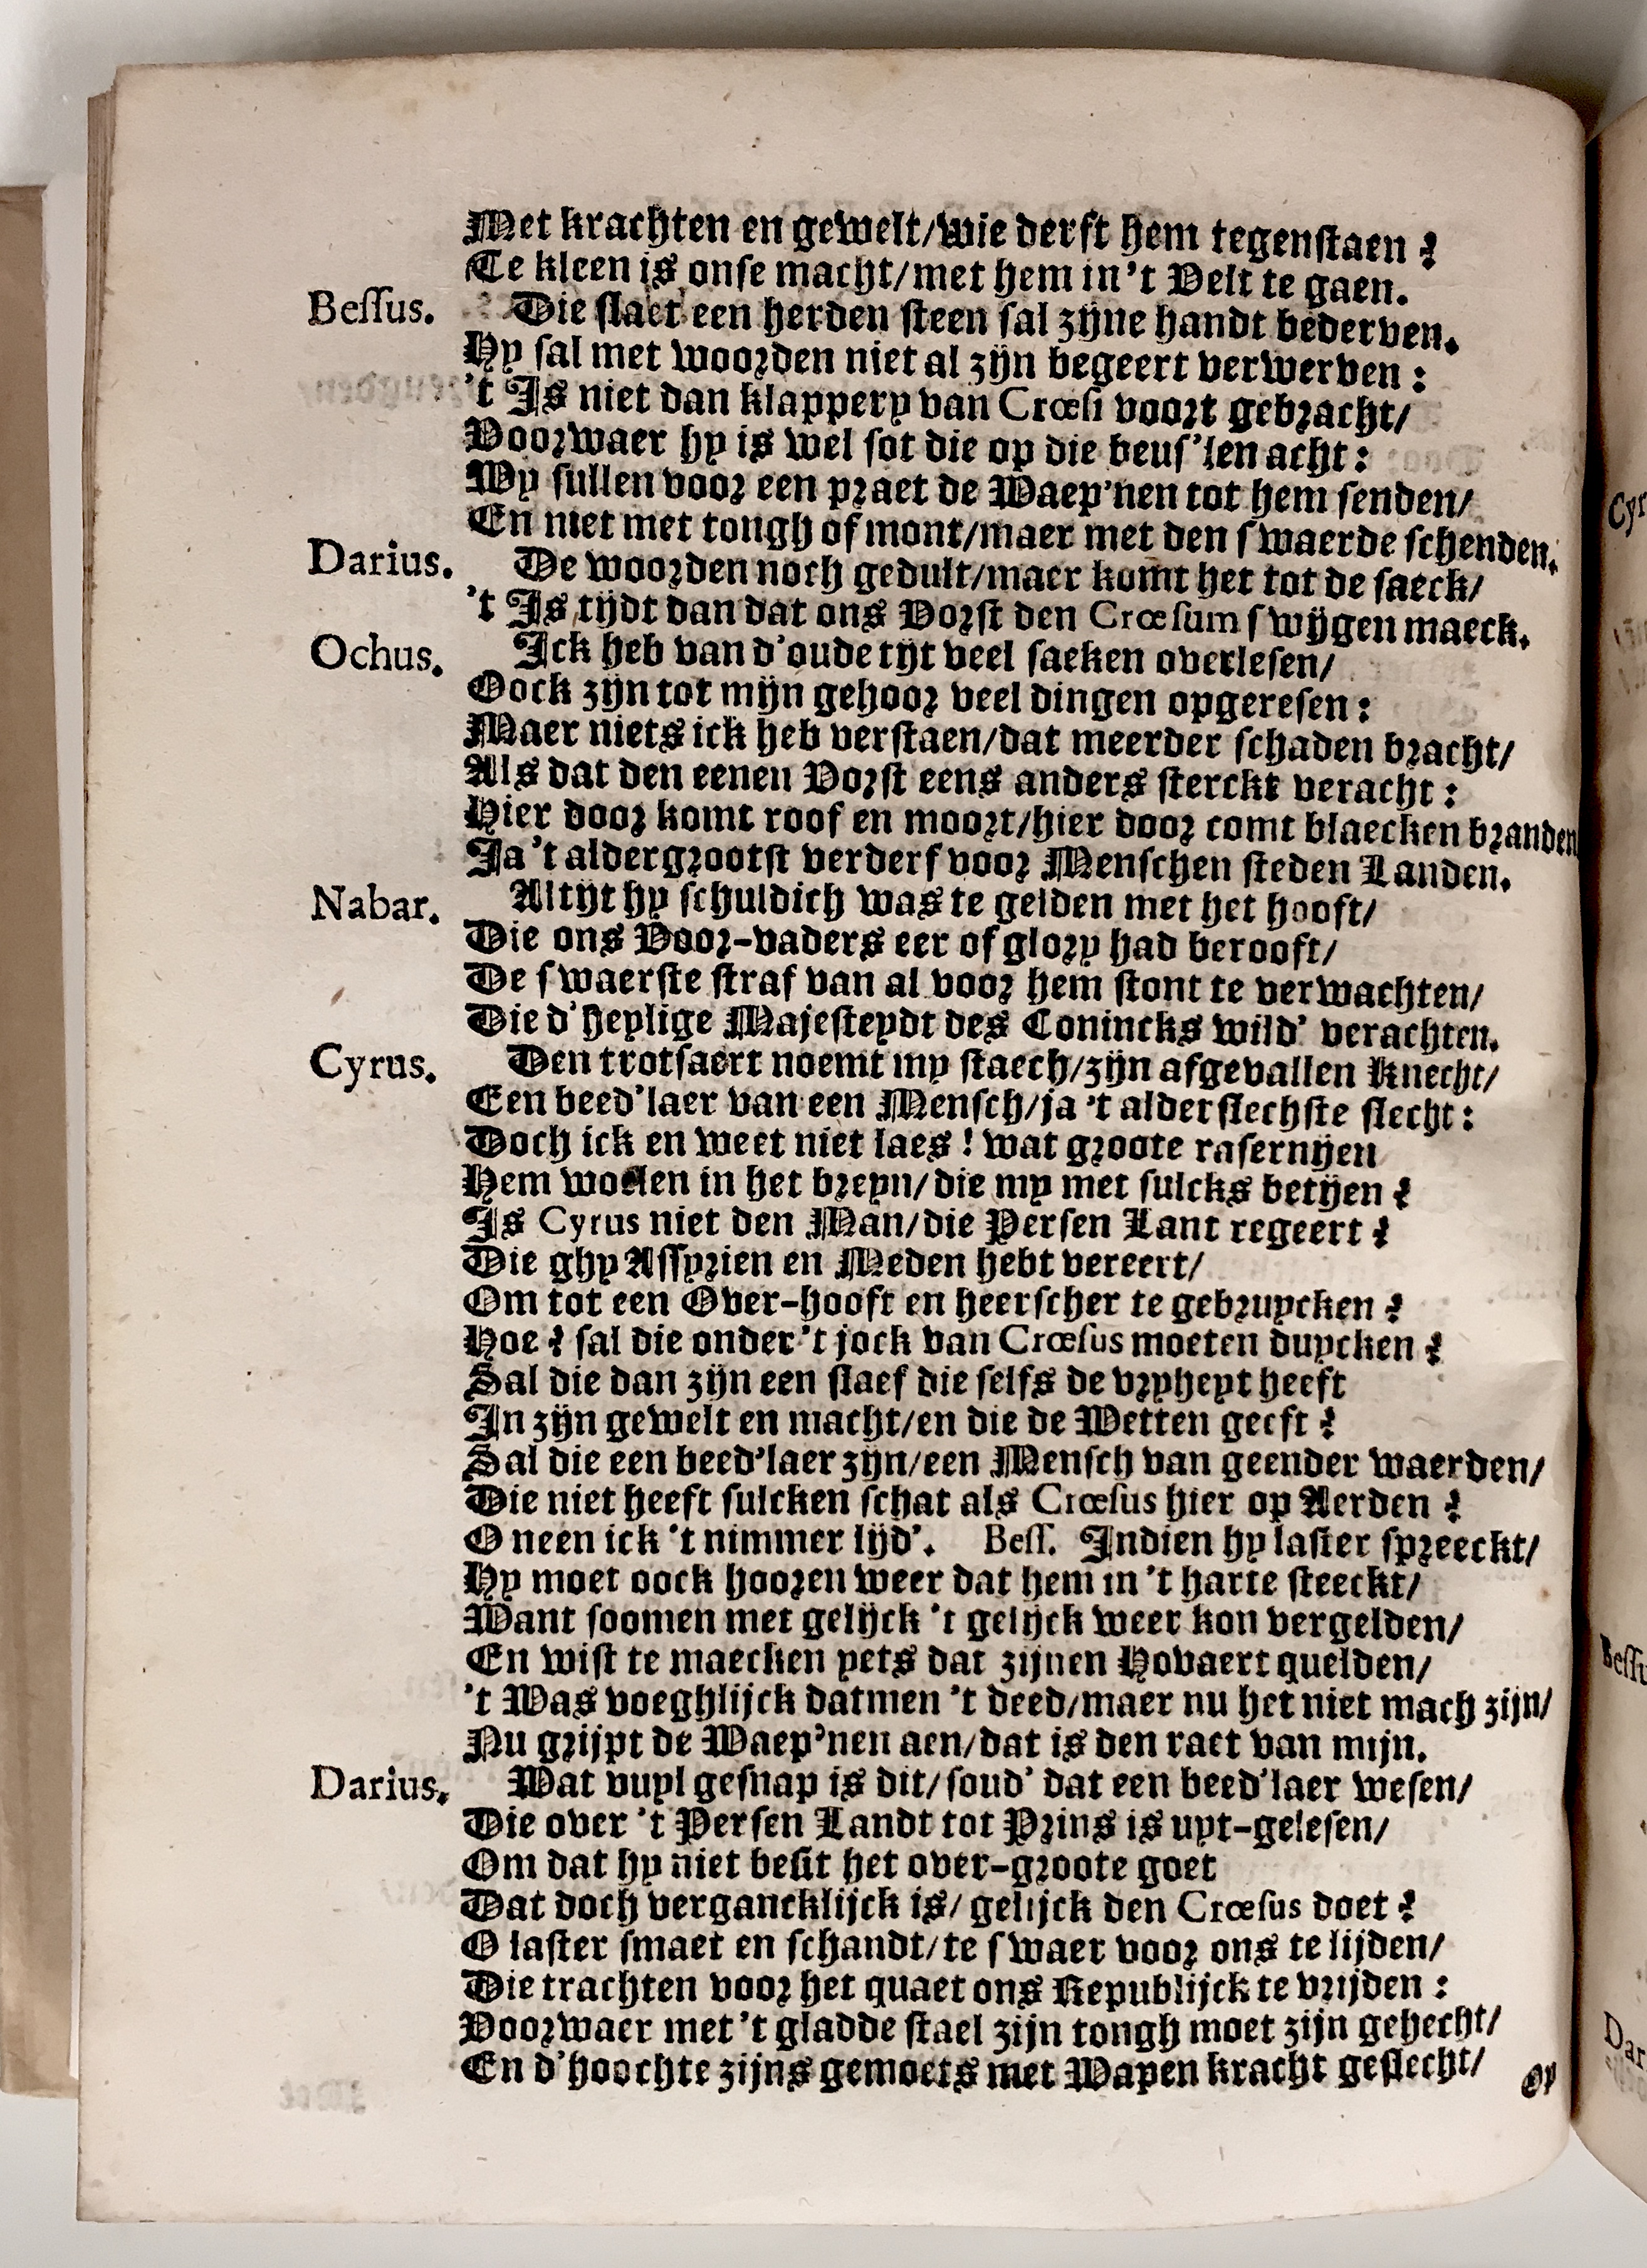 Met krachten en gewelt/wie derft hem tegenstaen?
Te kleen is onse macht/met hem in't Velt te gaen.
Bessus. Die slaet een herden steen sal zijne handt bederven.
Hy sal met woorden niet al zijn begeert verwerven:
't Is niet dan klappery van Crœsi voort gebracht/
Voorwaer hy is wel sot die op die beus'len acht:
Wy sullen voor een praet de Waep'nen tot hem senden/
En niet met tongh of mont/maer met den swaerde schenden.
Darius. De woorden noch gedult/maer komt het tot de saeck/
't Is tijdt dan dat ons Vorst den Crœsum swijgen maeck.
Ochus. Ick heb van d'oude tijt veel saeken overlesen/
Oock zijn tot mijn gehoor veel dingen opgeresen:
Maer niets ick heb verstaen/dat meerder schaden bracht/
Als dat den eenen Vorst eens anders sterckt veracht:
Hier door komt roof en moort/hier door comt blaecken branden
Ja 't aldergrootst verderf voor Menschen steden Landen.
Nabar. Altijt hy schuldich was te gelden met het hooft/
Die ons Voor-vaders eer of glory had berooft/
De swaerste straf van al voor hem stont te verwachten/
Die d'heylige Majesteydt des Conincks wild' verachten.
Cyrus. Den trotsaert noemt my staech/zijn afgevallen Knecht/
Een beed'laer van een Mensch/ja 't alderslechste slecht:
Doch ick en weet niet laes! wat groote rasernijen
Hem woelen in het breyn/die my met sulcks betijen?
Is Cyrus niet den Man/die Persen Lant regeert?
Die ghy Assyrien en Meden hebt vereert/
Om tot een Over-hooft en heerscher te gebruycken?
Hoe? sal die onder 't jock van Crœsus moeten duycken?
Sal die dan zijn een slaef die selfs de vryheyt heeft
In zijn gewelt en macht/en die de Wetten geeft?
Sal die een beed'laer zijn/een Mensch van geender waerden/
Die niet heeft sulcken schat als Crœsus hier op Aerden?
O neen ick 't nimmer lijd'. Bess. Indien hy laster spreeckt/
Hy moet oock hooren weer dat hem in 't harte steeckt/
Want soomen met gelijck 't gelijck weer kon vergelden/
En wist te maecken yets dat zijnen Hovaert quelden/
't Was voeghlijck datmen 't deed/maer nu het niet mach zijn/
Nu grijpt de Waep'nen aen/dat is den raet van mijn.
Darius. Wat vuyl gesnap is dit/soud' dat een beed'laer wesen/
Die over 't Persen Landt tot Prins is uyt-gelesen/
Om dat hy niet besit het over-groote goet
Dat doch vergancklijck is/gelijck den Crœsus doet?
O laster smaet en schandt/te swaer voor ons te lijden/
Die trachten voor het quaet ons Republijck te vrijden:
Voorwaer met 't gladde stael zijn tongh moet zijn gehecht/
En d'hoochte zijns gemoets met Wapen kracht geslecht/
Op